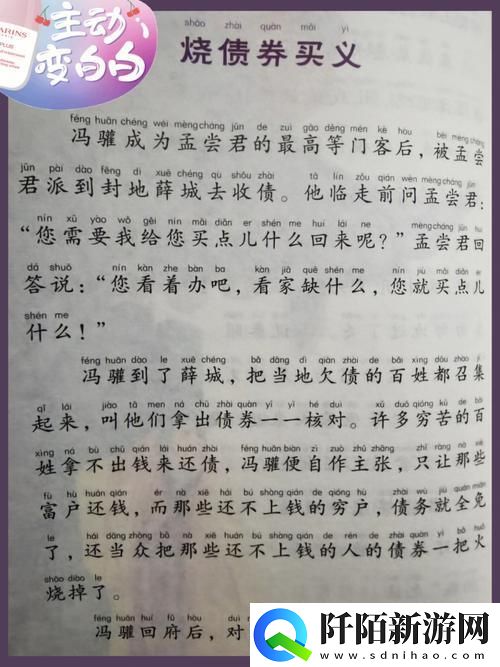 CLARINS
PLUS
主动
变白白
shāo zhài quàn mǎi yì
烧债券买义
féng huān chéng wéi mèng cháng jūn de zuì gāo děng mén kè hòu bèi mèng cháng
冯驩成为孟尝君的最高等门客后，被孟尝
jūn pài dào fēng dì xuē chéng qù shōu zhài tā lín zǒu qián wèn mèng cháng jūn
君派到封地薛城去收债。他临走前问孟尝君：
nín xū yào wǒ gěi nín mǎi diǎn er shén me huí lái ne mèng cháng jūn huí
“您需要我给您买点儿什么回来呢？”孟尝君回
dá shuō nín kàn zhe bàn ba kàn jiā quē shén me nín jiù mǎi diǎn er
答说：“您看着办吧，看家缺什么，您就买点儿
shén me
什么！”
féng huān dào le xuē chéng bǎ dāng dì qiàn zhài de bǎi xìng dōu zhào jí
冯驩到了薛城，把当地欠债的百姓都召集
qǐ lái jiào tā men ná chū zhài quàn yī yī hé duì xǔ duō qióng kǔ de bǎi
起来，叫他们拿出债券一一核对。许多穷苦的百
xìng ná bù chū qián lái huán zhài féng huān biàn zì zuò zhǔ zhāng zhǐ ràng nà xiē
姓拿不出钱来还债，冯驩便自作主张，只让那些
fù hù huán qián ér nà xiē hái bú shàng qián de qióng hù zhài wù jiù quán miǎn
富户还钱，而那些还不上钱的穷户，债务就全免
le hái dāng zhòng bǎ nà xiē huán bú shàng qián de rén de zhài quàn yì bǎ huǒ
了，还当众把那些还不上钱的人的债券一把火
shāo diào le
烧掉了。
féng huān huí fǔ hòu duì
冯驩回府后，对
阡陌新游网
www.sdnihao.com